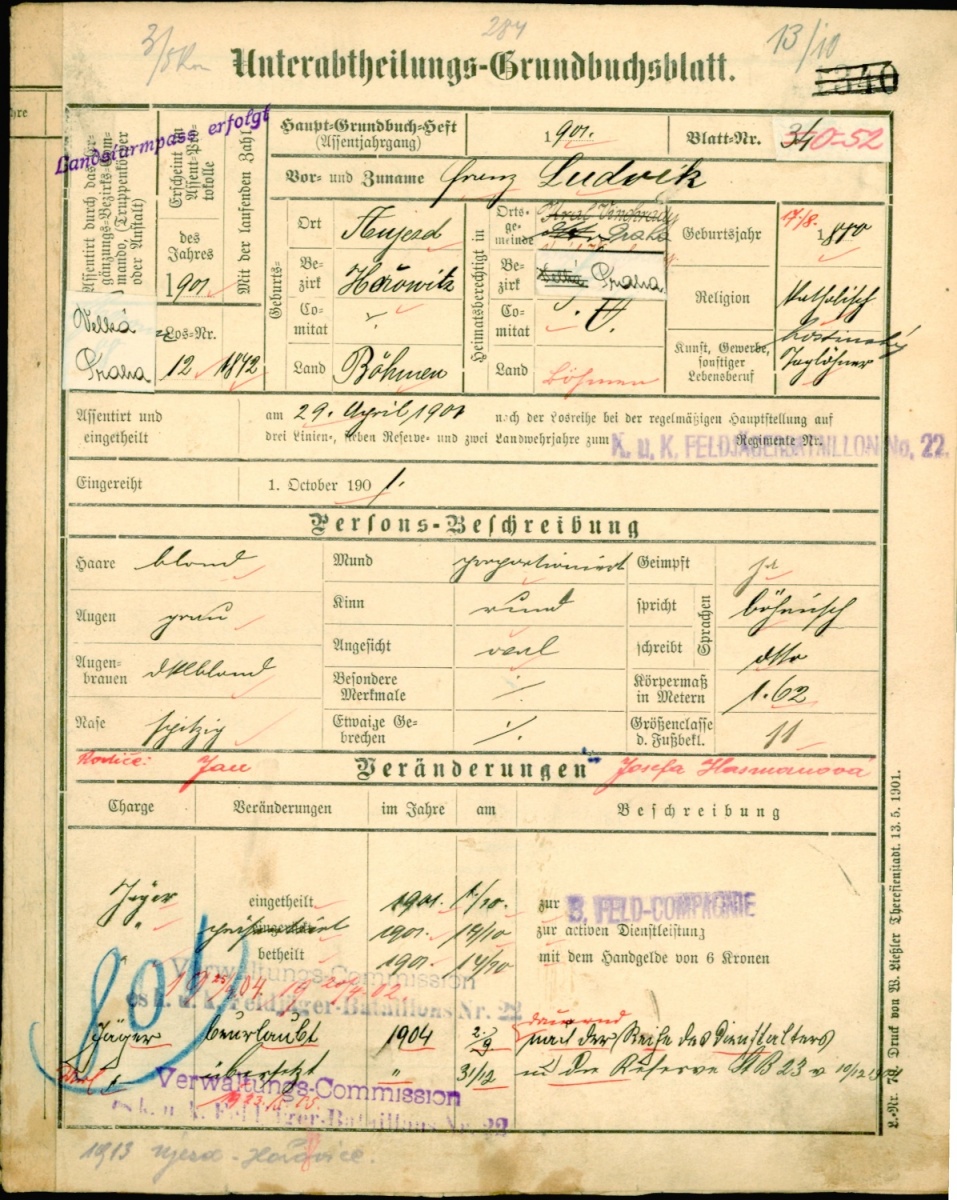 284
13/10
Unterabtheilungs-Grundbuchsblatt.
340
Landsturmpass erfolgt
Assentirt durch das Ergänzungs-Bezirks-Commando, (Truppenkörper oder Anstalt)
Velká
Praha
Erscheint im Assent-Protokolle
des
Jahres
1901
Mit der laufenden Zahl
Los-Nr.
12 1842
Haupt-Grundbuch-Heft
(Assentjahrgang)
1901.
Blatt-Nr.
340-52
Vor- und Zuname Franz Ludvik
Geburts-
Ort
Bezirk Hořowitz
Comitat ·/.
Land Böhmen
Heimatsberechtigt in
Ortsgemeinde Král. Vinohrady
Praha
Bezirk Velká Praha
Comitat
Land Böhmen
Geburtsjahr 17/8. 1880
Religion Katholisch
Kunst, Gewerbe, sonstiger Lebensberuf
Taglöhner
Assentirt und eingetheilt
am 29. April 1901 nach der Losreihe bei der regelmäßigen Hauptstellung auf
drei Linien-, sieben Reserve- und zwei Landwehrjahre zum Regimente Nr.
K. u. K. FELDJÄGERBATAILLON No. 22.
Eingereiht 1. October 1901.
Persons-Beschreibung
Haare blond
Augen grau
Augenbrauen dklblond
Nase spitzig
Mund proportionirt
Kinn rund
Angesicht oval
Besondere Merkmale ·/.
Etwaige Gebrechen ·/.
Geimpft ja
Sprachen
spricht böhmisch
schreibt dtto
Körpermaß in Metern 1·62
Größenclasse d. Fußbekl. 11
Rodiče: Jan
Veränderungen
Josefa Hasmanová
Charge Veränderungen im Jahre am Beschreibung
Jäger eingetheilt 1901. 1/10. zur
B. FELD-COMPAGNIE
" präsentirt 1901. 10/10 zur activen Dienstleistung
" betheilt 1901 14/10 mit dem Handgelde von 6 Kronen
Verwaltungs-Commission
des k. u. k. Feldjäger-Bataillons Nr. 22
dauernd
Jäger beurlaubt 1904 nach der Reihe des Dienstalters
übersetzt " 31/12 in die Reserve
Verwaltungs-Commission
des k. u. k. Feldjäger-Bataillons Nr. 22
1913 Ujezd - Hořovice.
L.-Nr. 79. Druck von W. Ließler Theresienstadt. 13. 5. 1901.